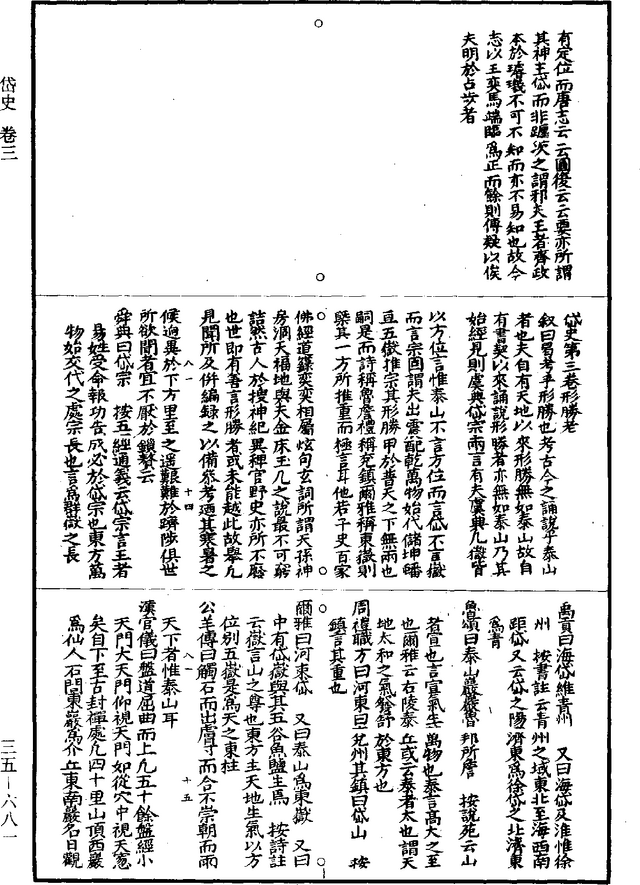 岱史 卷三
有定位而唐志云云圖後云云要亦所謂
其神主岱而非躔次之謂邪夫王者齊政
本於璿璣不可不知而亦不易知也故今
志以王奕馬端臨為正而餘則傳疑以俟
夫明於占步者
岱史第三卷形勝考
叙曰曷考乎形勝也考古今之誦說乎泰山
者也夫自有天地以來形勝無如泰山故自
有書契以來誦說形勝者亦無如泰山乃其
始經見則虞典岱宗兩言有夫虞典凡嶽皆
以方位言惟泰山不言方位而言岱不言嶽
而言宗固謂夫出震配乾萬物始代儲坤皤
亘五嶽推宗其形勝甲於普天之下無兩也
嗣是而詩稱魯詹禮稱兗鎮爾雅稱東嶽則
槩其一方所推重而極言耳他若子史百家
佛經道籙奕奕相屬炫句玄詞所謂天孫神
房洞天福地與夫金床玉几之說最不可窮
詰然古人於搜神紀異稗官野史亦所不廢
也世即有善言形勝者或未能越此故舉凡
見聞所及併編錄之以備叅考適其寒暑之
八一 十四
候逈異於下方里至之遥艱難於躋陟俱世
所欲聞者宜不厭於鎖贅云
舜典曰岱宗 按五經通義云岱宗言王者
易姓受命報功告成必於岱宗也東方萬
物始交代之處宗長也言為群嶽之長
禹貢曰海岱維青州 又曰海岱及淮惟徐
州 按書註云青州之域東北至海西南
距岱又云岱之陽濟東為徐岱之北濟東
為青
魯頌曰泰山巖巖魯邦所詹 按說苑云山
者宣也言宣氣生萬物也泰言高大之至
也爾雅云右陵泰丘或云泰者太也謂天
地太和之氣發舒於東方也
周禮職方曰河東曰兗州其鎮曰岱山 按
鎮言其重也
爾雅曰河東岱 又曰泰山為東嶽 又曰
中有岱嶽與其五谷魚鹽生焉 按詩註
云嶽言山之尊也東方主天地生氣以方
位別五嶽是為天之東柱
公羊傳曰觸石而出膚寸而合不崇朝而雨
八一 十五
天下者惟泰山耳
漢官儀曰盤道屈曲而上凡五十餘盤經小
天門大天門仰視天門如從穴中視天窻
矣自下至古封禪處凡四十里山頂西巖
為仙人石門東巖為介丘東南巖名日觀
三五—六八一